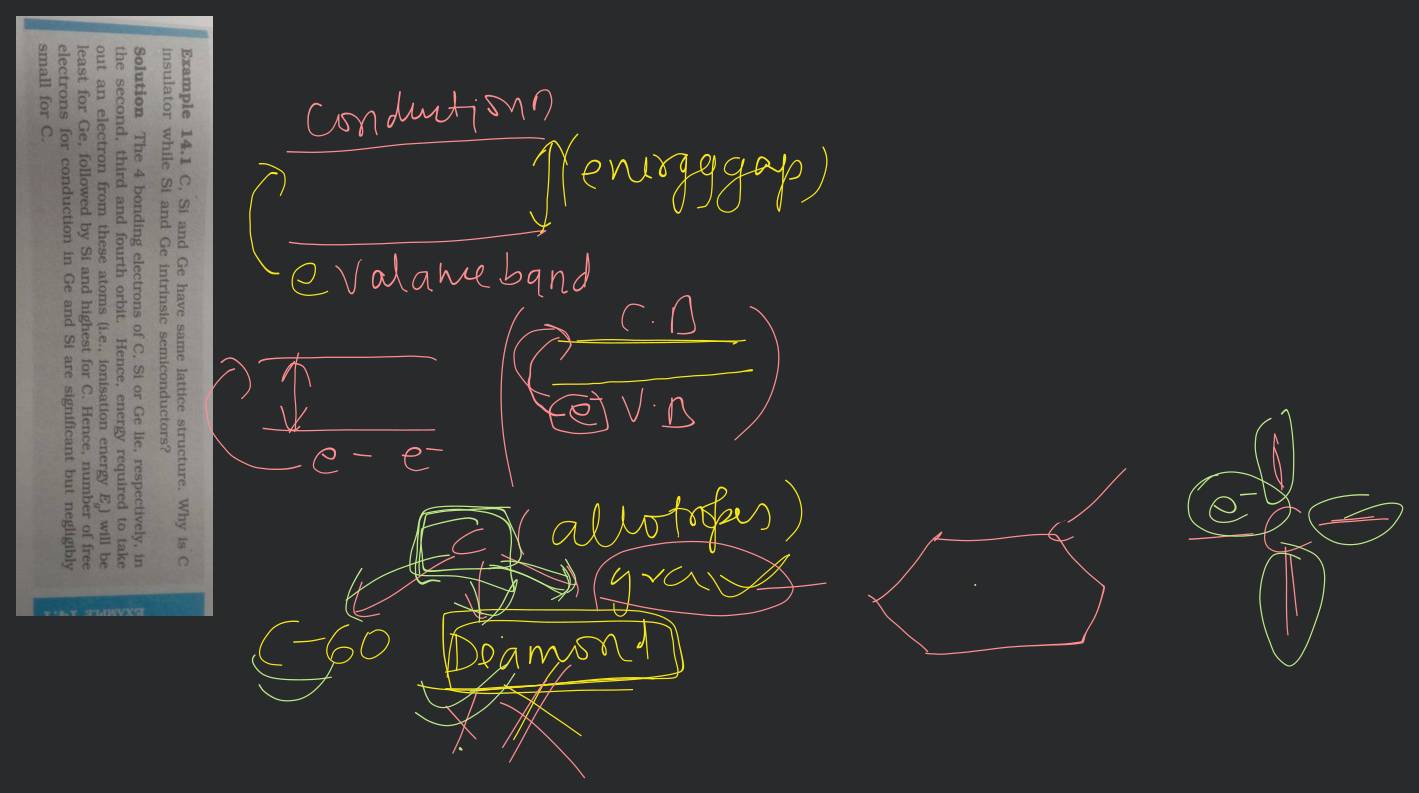 Example 14.1 C, Si and Ge have same lattice structure. Why is C
insulator while Si and Ge intrinsic semiconductors?
Solution The 4 bonding electrons of C, Si or Ge lie, respectively, in
the second, third and fourth orbit. Hence, energy required to take
out an electron from these atoms (i.e., ionisation energy Eg) will be
least for Ge, followed by Si and highest for C. Hence, number of free
electrons for conduction in Ge and Si are significant but negligibly
small for C.
EXAMPLE 14.1
Conduction
(energy gap)
e Valance band
C.B
e- V.B
e- e-
C (allotropes)
C-60
Diamond
e-